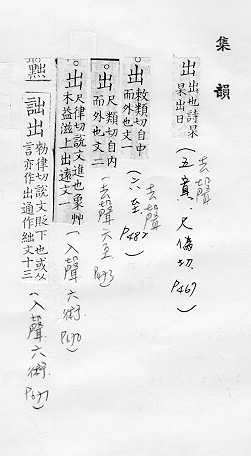 集韻
出 出也詩杲
杲出日
(五寘,尺僞切 P467)
去聲
出 敕類切自中
而外也文一
(六至 P482)
去聲
。出 尺類切自內
而外也文二
(去聲 六至 P493)
。出 尺律切說文進也象艸
木益滋上出達文一
(入聲 六術 P690)
。黜
詘出 勑律切說文貶下也或从
言亦作出通作絀文十三
(入聲 六術 P697)